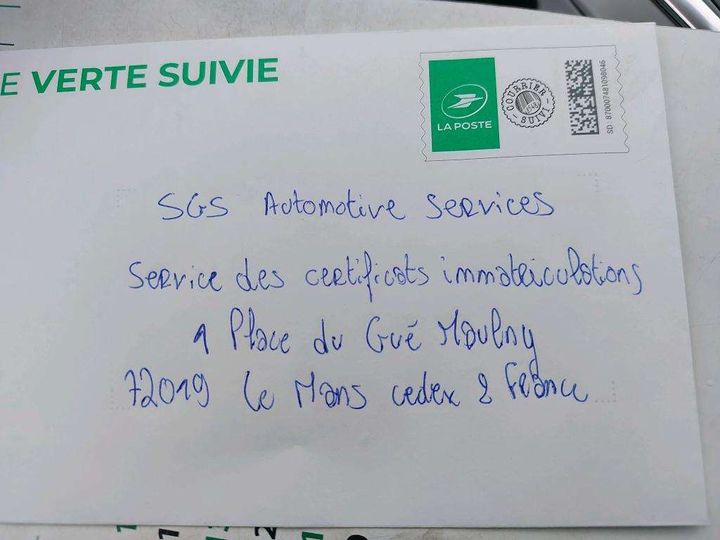 E VERTE SUIVIE
LA POSTE
COURRIER SUIVI
SD 87000748109B046
SGS Automotive Services
Service des certificats immatriculations
1 Place du Gué Maulny
72019 Le Mans cedex 2 France